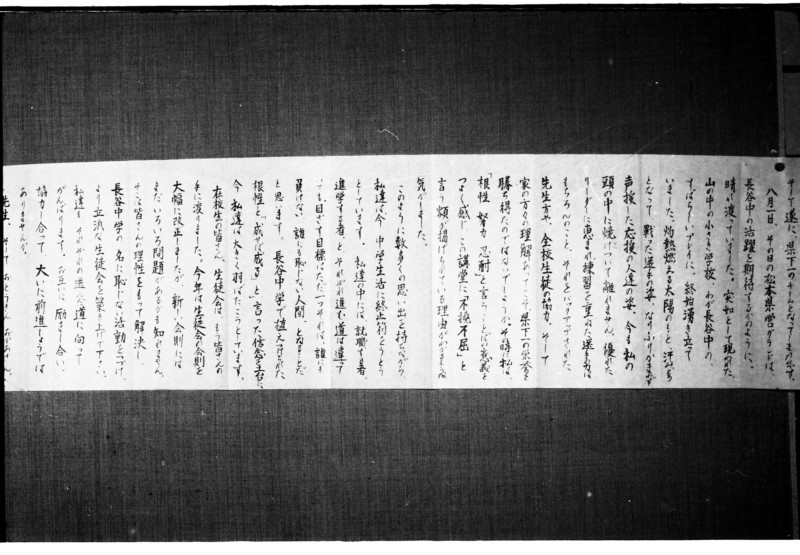 そして遂に、県下一のチームとなったのです。
八月一日 その日の松本県営グランドは、
長谷中の活躍を期待するかのように、
晴れ渡っていました。突如として現われた
山の中の小さな学校 わが長谷中の
すばらしいプレイに、終始湧き立て
いました。灼熱燃える太陽のもと 汗みどろ
となって 戦った選手の姿、なりふりかまわず
声援した応援の人達の姿、今も私の
頭の中に焼けついて離れません。優れた
リーダに恵まれ練習を重ねた選手は
もちろんのこと、それをバックアップされた
先生方や、全校生徒の協力、そして
家の方々の理解あってこそ県下一の栄誉を
勝ち得たのではないでしょうか。その時に私は、
「根性 努力 忍耐」と言うことばの意義を
つよく感じ この講堂に「不撓不屈」と
言う額が掲げられている理由がわかるような
気がしました。
このように数多くの思い出を持ちながら、
私達は今 中学生活に終止符をうとう
としています。私達の中には、就職する者、
進学する者と それぞれ進む道は違って
いても、目ざす目標はただ一つそれは、誰にも
負けない、誰にも恥じない人間となることだ
と思います。長谷中学で植えつけられた
根性と、「成せば成る」と言った信念を土台に
今 私達は大きく羽ばたこうとしています。
在校生の皆さん、生徒会は もう皆さんの
手に渡りました。今年は生徒会の会則を
大幅に改正しましたが 新しい会則には
まだいろいろ問題があるかも知れません。
そこは皆さんの理性をもって解決し、
長谷中学の 名に恥じない活動をつづけ、
より立派な生徒会を築き上げて下さい。
私達も それぞれの進む道に向って
がんばります。お互に 励まし合い、
協力し合って 大いに前進しようでは
ありませんか。
先生、そして おとうさん おかあさん、